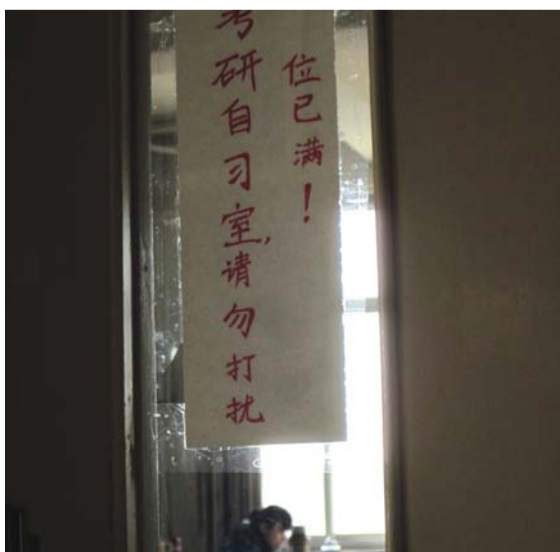 考研自习室,请勿打扰
位已满!